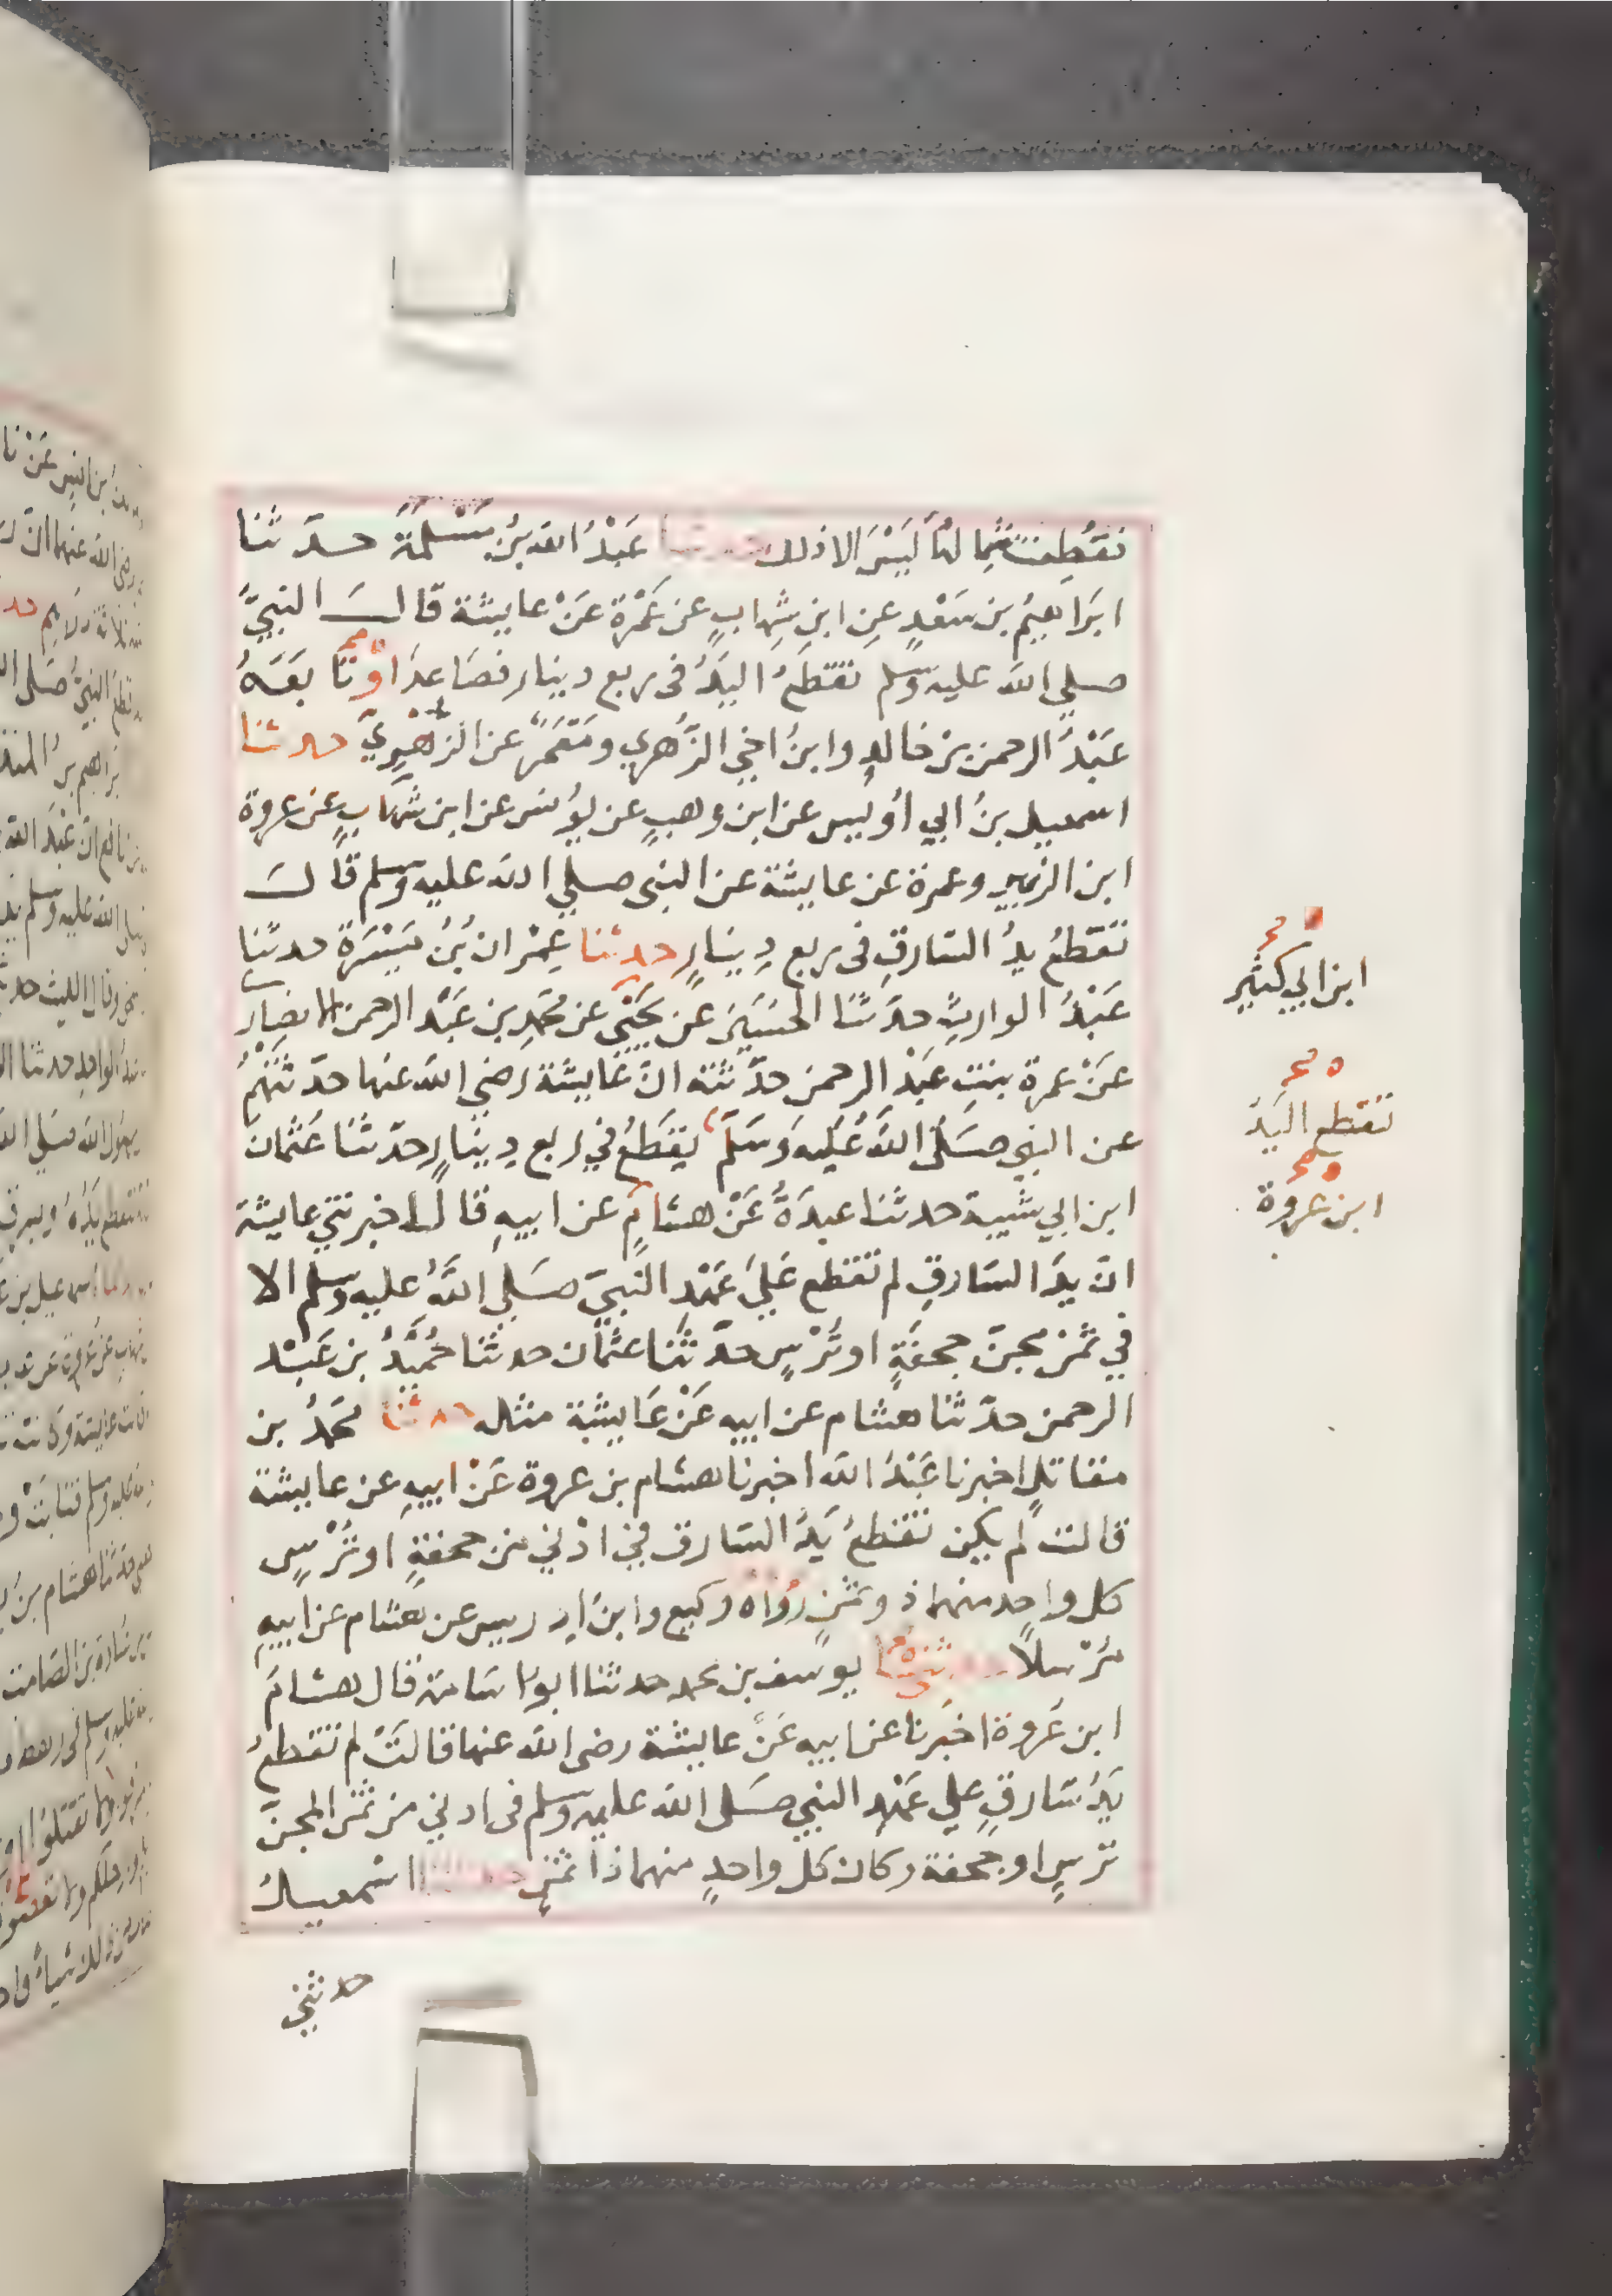 فقطعت شمالها ليس الا ذلك حدثنا عَبْدُ الله بنُ مَسْلمَةَ حدّثنا
ابرَاهيمُ بن سَعْدٍ عنِ ابنِ شِهابٍ عن عَمْرَة عَنْ عايشة قالَ النبيّ
صلي الله عليه وسلم تقطعُ اليَدُ فى ربع دينار فصَاعدَا وتَابَعَهُ
عَبْدُ الرحمن بن خالدٍ وابنُ اخي الزّهري ومَعْمَرٌ عن الزهريّ حدثنا
اسمعيل بنُ ابي أُويس عن ابن وهبٍ عن يوُنس عن ابن شهابٍ عن عروة
ابن الزبير وعمرة عن عايشة عن النبى صلي الله عليه وسلم قالَ
تقطعُ يدُ السّارقِ فى ربع دِينارٍ حدثنا عِمْران بْنُ مَيْسَرَة حدثنا
عَبْدُ الوارثِ حدّثنَا الحسَينُ عن يَحْيَى عن مُحَمّدِ بن عَبْد الرحمن الانصَارِ
عَنْ عمرة بنتِ عَبْدِ الرحمن حدّثته انّ عَايشَة رضي الله عنها حدّثتهُمْ
عن النبي صَلَى اللهُ عَلَيْه وَسَلَّمَ يقطَعُ في ربع دِينارٍ حدّثنا عثمان
ابن ابي شيبة حدثنا عبدَةُ عَنْ هشامٍ عن ابيهِ قال اخبرتني عايشة
انّ يدَ السّارقِ لم تقطع عَليَ عَهْدِ النبيّ صَلي اللَّهُ عليه وسلم الا
في ثمن مجنّ جحفةٍ او تُرْسٍ حدّثنا عثمان حدثنا حُمَيْدُ بن عَبْد
الرحمن حدّثنا هشام عن ابيه عَنْ عَايشة مثله حدثنا محمدُ بن
مقاتلٍ اخبرنا عَبْدُ الله اخبرنا هشام بن عروة عَنْ ابيهِ عن عايشة
قالت لم يكن تقطعُ يَدُ السّارق في ادْني من جحفةٍ او تُرْسٍ
كل واحِدٍ منهما ذو ثمنٍ رَوَاه وكيع وابنُ ادريس عن هشام عن ابيهِ
مُرْسلاً حدثنى يوسف بن محمد حدثنا ابو اسَامة قال هشام
ابن عَروة اخبَرنا عن ابيه عَنْ عايشة رضى الله عنها قالتْ لم تقطعُ
يَدُ سَارقٍ علي عَهْدِ النبي صَلى الله عليه وسلم فى ادني من ثمن المجنّ
ترسٍ او جحفة وكان كل واحدٍ منهما ذا ثمنٍ حدثنا اسْمعيل
حدثني
ابن ابي كثير
تقطع اليَدُ
ابن عروة